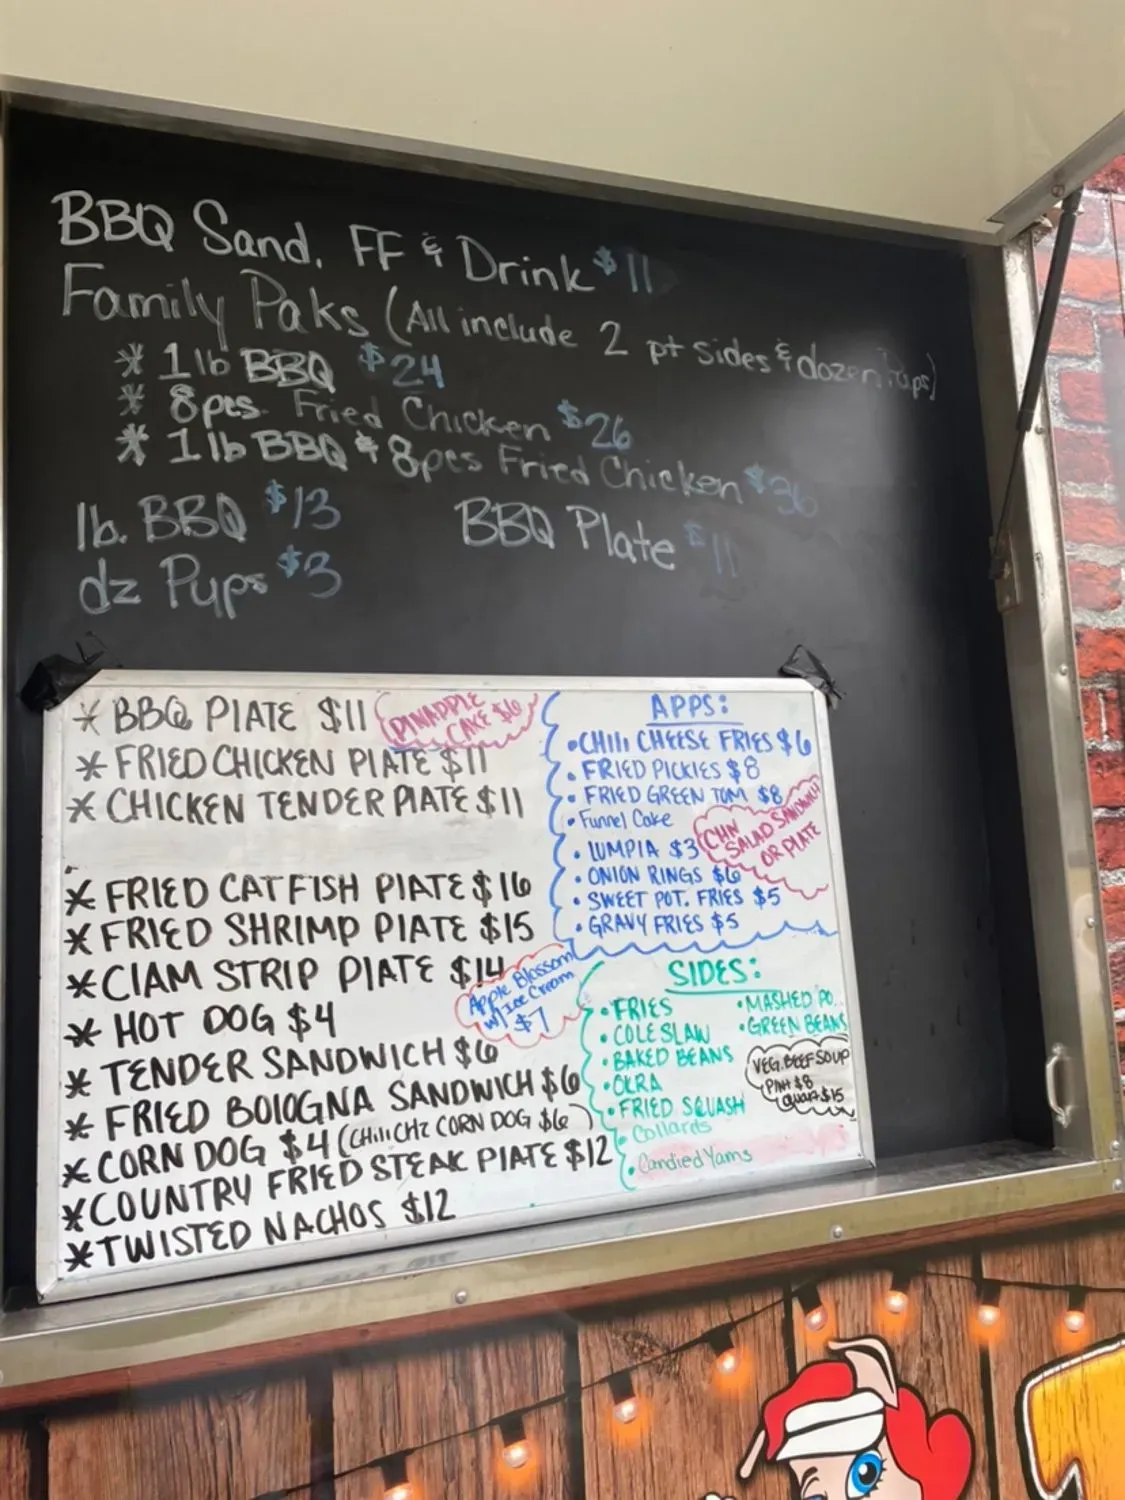 BBQ Sand. FF & Drink $11
Family Paks (All include 2 pt sides & dozen Pups)
* 1 lb BBQ $24
* 8 pcs. Fried Chicken $26
* 1 lb BBQ & 8 pcs Fried Chicken $36
lb. BBQ $13
BBQ Plate $11
dz Pups $3
* BBQ PLATE $11
PINAPPLE
CAKE $6
* FRIED CHICKEN PLATE $11
* CHICKEN TENDER PLATE $11
* FRIED CATFISH PLATE $16
* FRIED SHRIMP PLATE $15
* CLAM STRIP PLATE $14
Apple Blossom
w/ Ice Cream
$7
* HOT DOG $4
* TENDER SANDWICH $6
* FRIED BOLOGNA SANDWICH $6
* CORN DOG $4 (CHILI CHZ CORN DOG $6)
* COUNTRY FRIED STEAK PLATE $12
* TWISTED NACHOS $12
APPS:
• CHILI CHEESE FRIES $6
• FRIED PICKLES $8
• FRIED GREEN TOM $8
• Funnel Cake
• LUMPIA $3
• ONION RINGS $6
• SWEET POT. FRIES $5
• GRAVY FRIES $5
CHN
SALAD SANDWICH
OR PLATE
SIDES:
• FRIES
• COLESLAW
• BAKED BEANS
• OKRA
• FRIED SQUASH
• Collards
• Candied Yams
• MASHED PO..
• GREEN BEANS
VEG. BEEF SOUP
PINT $8
Quart $15